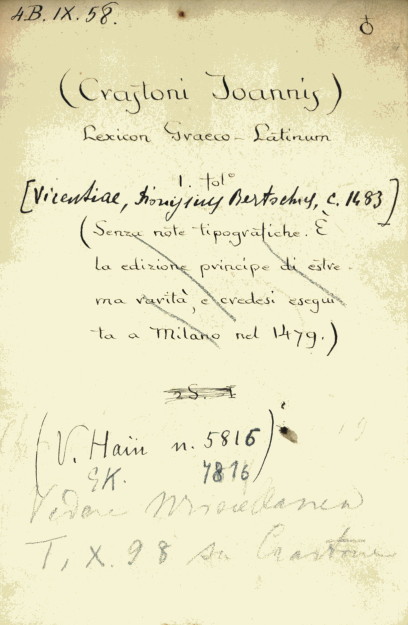 4B. IX. 58.
(Crastoni Joannis)
Lexicon Graeco-Latinum
1. fol°
[Vicentiae, Dionysius Bertochus, c. 1483]
(Senza note tipografiche. È
la edizione principe di estre-
ma rarità, e credesi esegui
ta a Milano nel 1479.)
(V. Hain n. 5816)
GK. 7816
Vedere Miscellanea
T, X. 98 su Crastone